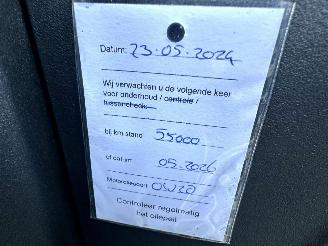 Datum: 23-05-2024
Wij verwachten u de volgende keer
voor onderhoud / controle /
tussencheck
bij km stand 55000
of datum 05-2026
Motoroliesoort OW20
Controleer regelmatig
het oliepeil